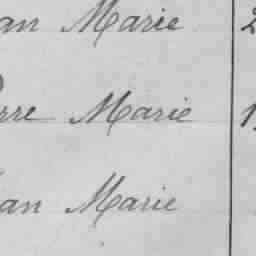 an Marie 2
rre Marie 1
an Marie